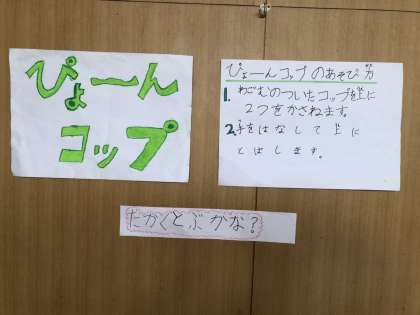 ぴょーん
コップ
ぴょーんコップのあそび方
1. わごむのついたコップを上に
2つをかさねます。
2.手をはなして上に
とばします。
たかくとぶかな?